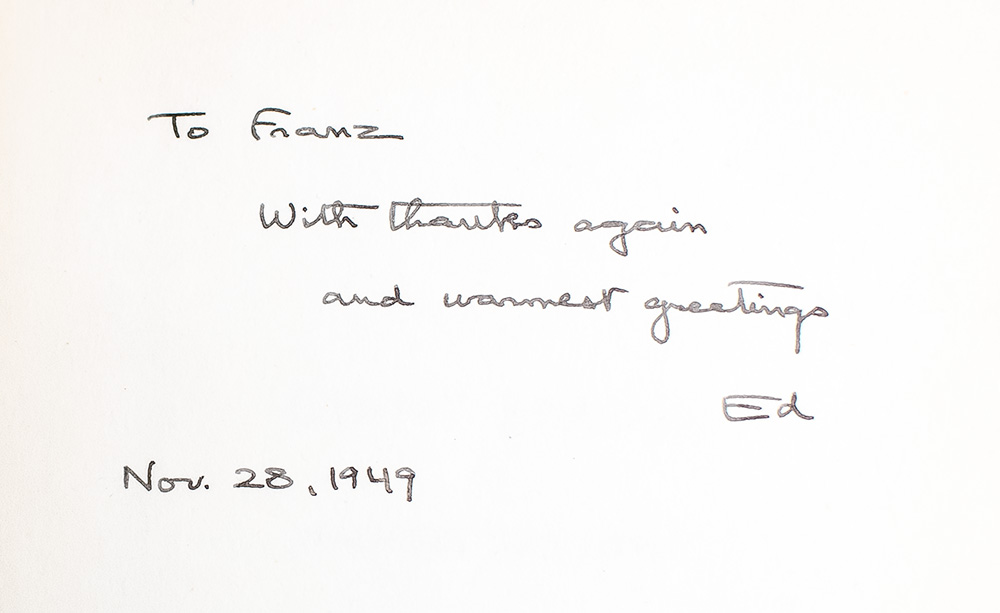 To Franz
With thanks again
and warmest greetings
Ed
Nov. 28, 1949